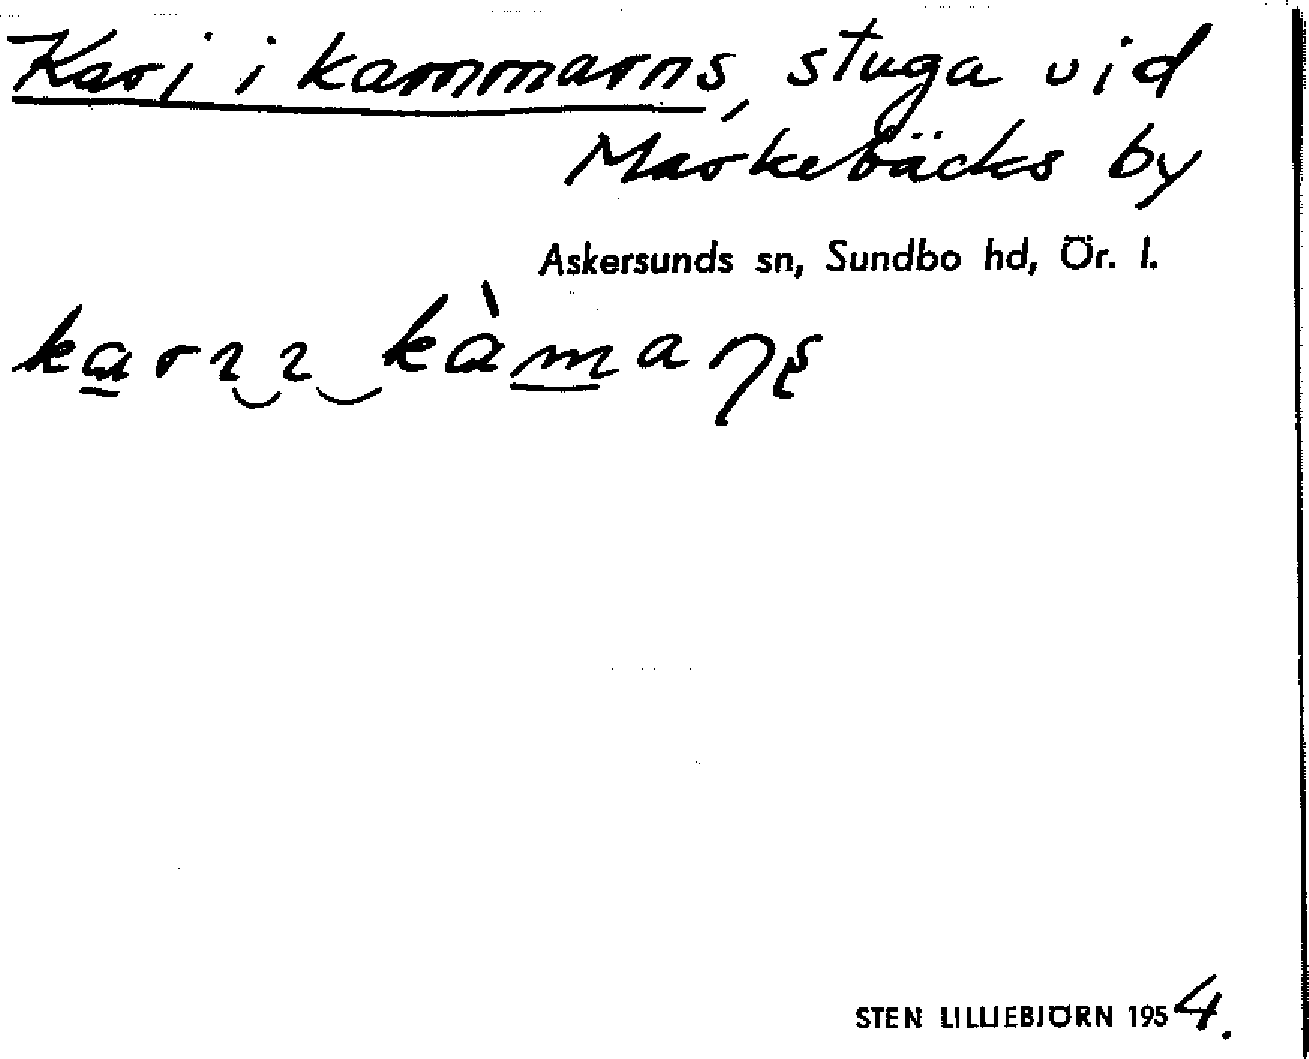 Kari i kammarns, stuga vid
Markebäcks by
Askersunds sn, Sundbo hd, Ör. l.
STEN LILLIEBJÖRN 1954.